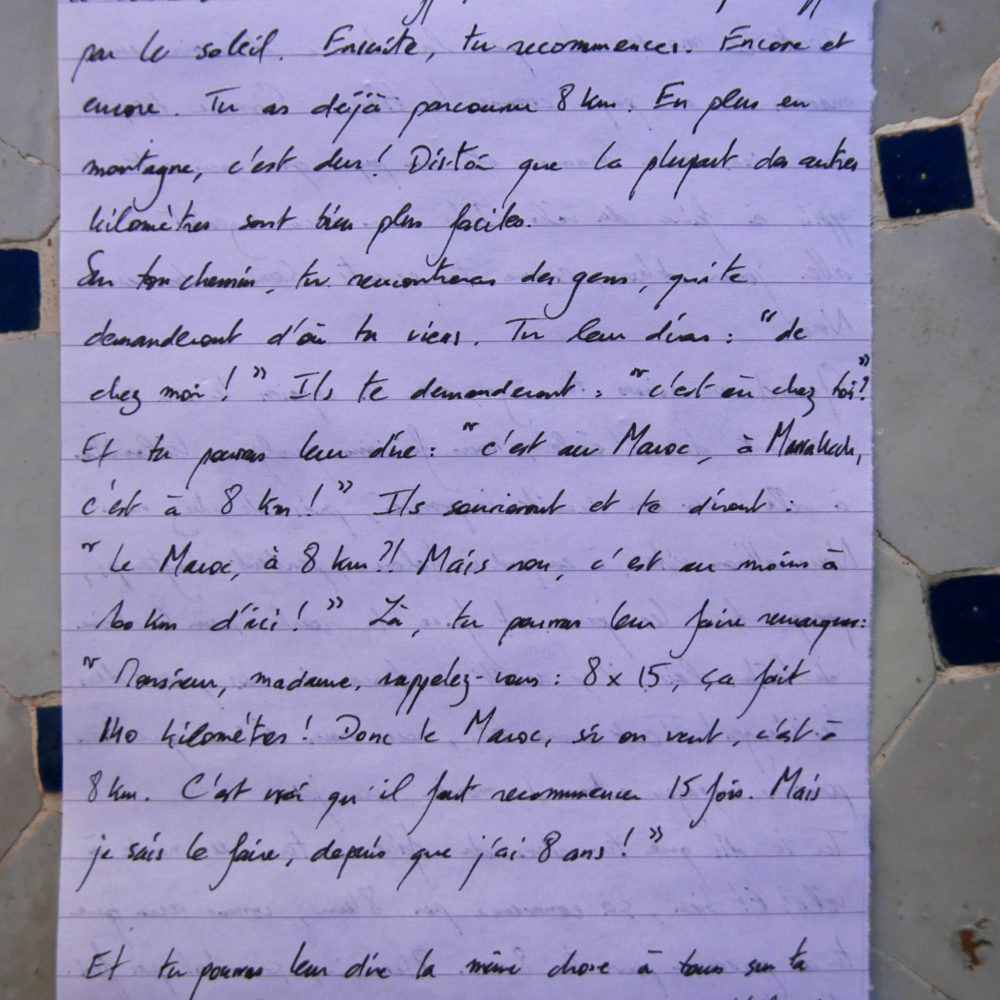 par le soleil. Ensuite, tu recommences. Encore et
encore. Tu as déjà parcouru 8 km. En plus en
montagne, c'est dur ! Dis-toi que la plupart des autres
kilomètres sont bien plus faciles.
Sur ton chemin, tu rencontreras des gens, qui te
demanderont d'où tu viens. Tu leur diras : "de
chez moi ! " Ils te demanderont : "c'est où chez toi?"
Et tu pourras leur dire : "c'est au Maroc, à Marrakech,
c'est à 8 km ! " Ils souriront et te diront :
"Le Maroc, à 8 km ?! Mais non, c'est au moins à
100 km d'ici ! " Là, tu pourras leur faire remarquer :
"Monsieur, madame, rappelez-vous : 8 x 15, ça fait
kilomètres ! Donc le Maroc, si on veut, c'est à
8 km. C'est vrai qu'il faut recommencer 15 fois. Mais
je sais le faire, depuis que j'ai 8 ans ! "
Et tu pourras leur dire la même chose à tous sur ta